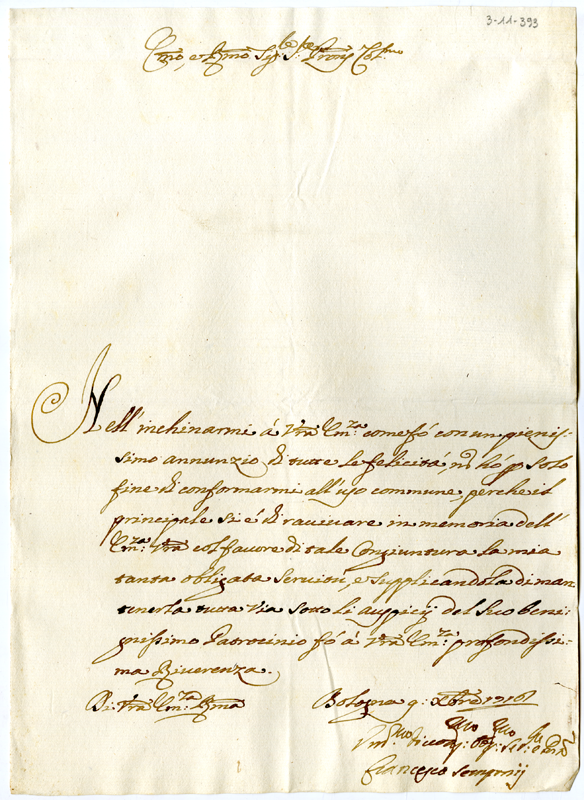 3-11-393
Em̃o, e Rm̃o Sig.re Sig.re P̃ron Col.mo
Nell'inchinarmi á Vr̃a Em.za come fó con un pienis:
simo annunzio di tutte le felicitá, nõ hó p solo
fine di conformarmi all'uso commune, perche il
principale si é di ravivare in memoria dell'
Em.za Vr̃a col favore di tale Congiuntura la mia
tanta obligata Servitú, e supplicandola di man:
tenerla tutta Via sotto li auspicij del suo beni:
gnissimo Patrocinio fó á Vr̃a Em.za profondissi:
ma Riverenza.
Di Vr̃a Em.za Rm̃a
Bologna 9: Xbre
Francesco Sempnij